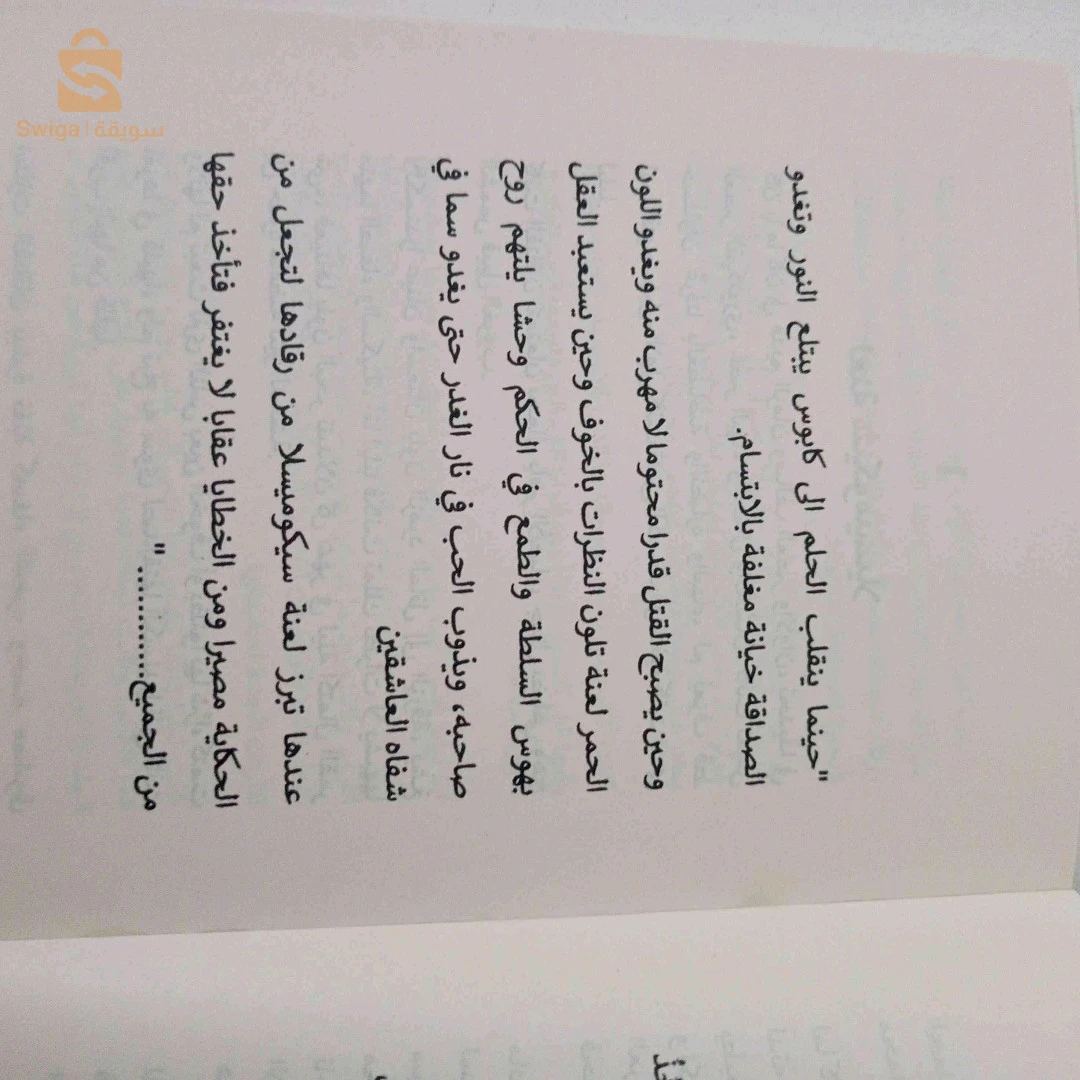 "حينما ينقلب الحلم الى كابوس يبتلع النور وتغدو
الصداقة خيانة مغلفة بالابتسام.
وحين يصبح القتل قدرا محتوما لا مهرب منه ويغدو اللون
الحمر لعنة تلون النظرات بالخوف وحين يستعبد العقل
بهوس السلطة والطمع في الحكم وحشا يلتهم روح
صاحبه، ويذوب الحب في نار الغدر حتى يغدو سما في
شفاه العاشقين
عندها تبرز لعنة سيكوميسلا من رقادها لتجعل من
الحكاية مصيرا ومن الخطايا عقابا لا يغتفر فتأخذ حقها
من الجميع............"
Swiga | سويقة